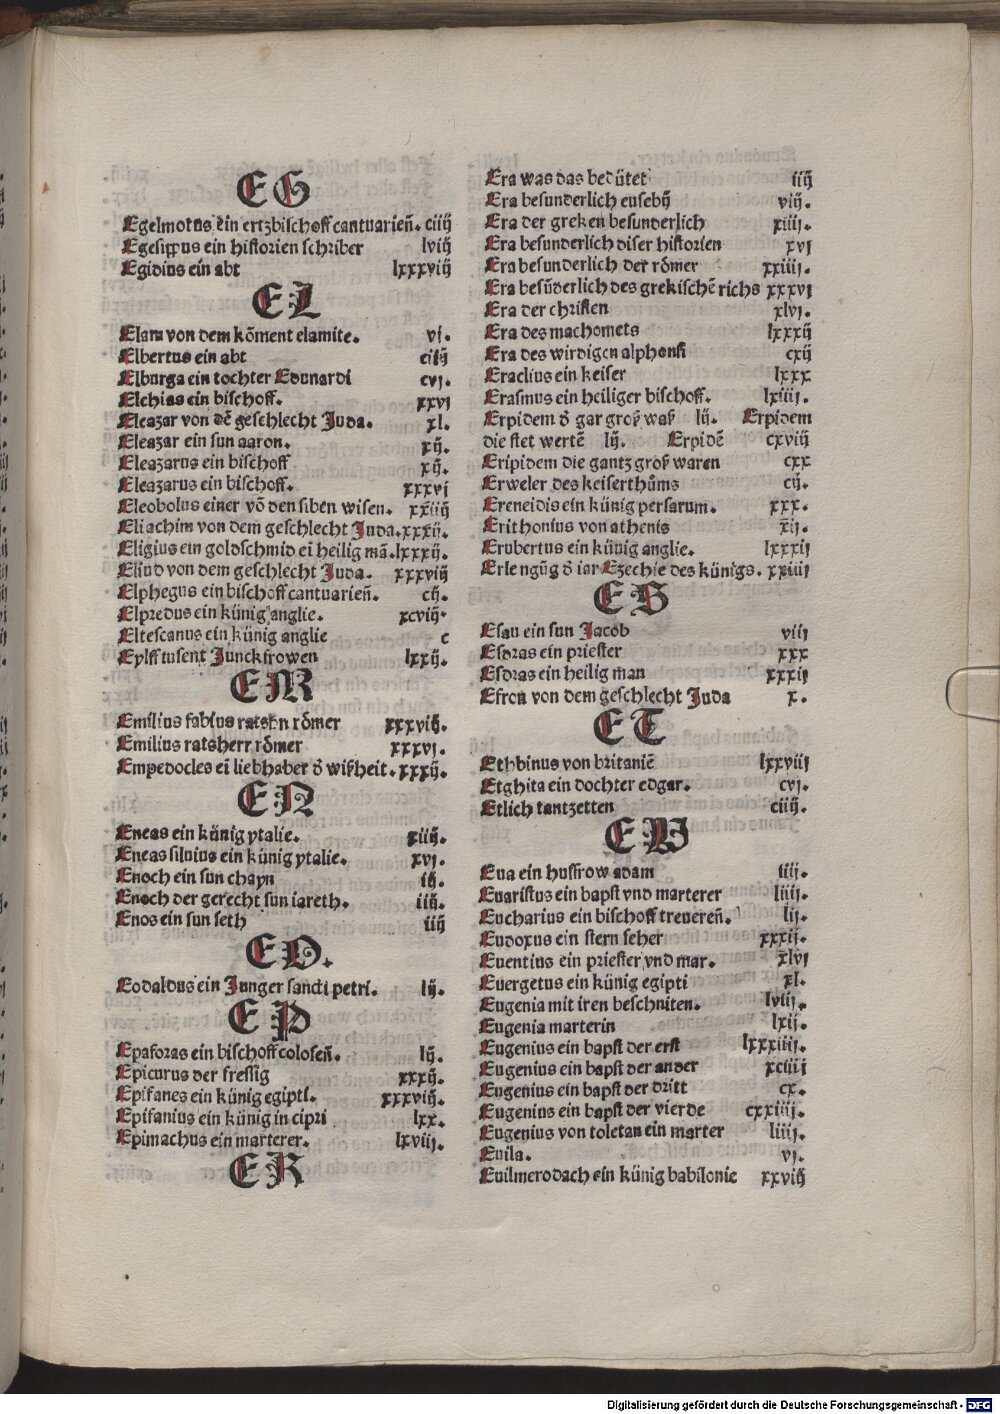 EG
Egelmotus ein ertzbischoff cantuarieñ. ciiij
Egesippus ein historien schriber lviij
Egidius ein abt lxxxviij
EL
Elam von dem kōment elamite. vj.
Elbertus ein abt ciiij
Elburga ein tochter Edunardi cvj.
Elchias ein bischoff. xxvj
Eleazar von dē geschlecht Juda. xl.
Eleazar ein sun aaron. xij.
Eleazarus ein bischoff xij.
Eleazarus ein bischoff. xxxvj
Eleobolus einer vō den siben wisen. xxiiij
Eliachim von dem geschlecht Juda. xxxij.
Eligius ein goldschmid eī heilig mā. lxxxij.
Eliud von dem geschlecht Juda. xxxviij
Elphegus ein bischoff cantuarieñ. cij.
Elpredus ein künig anglie. xcviij.
Eltescanus ein künig anglie c
Eylff tusent Junckfrowen lxxij.
EM
Emilius fabius ratshn römer xxxviij.
Emilius ratsherr römer xxxvj.
Empedocles eī liebhaber d̄ wißheit. xxxij.
EN
Eneas ein künig ytalie. xiiij.
Eneas siluius ein künig ytalie. xvj.
Enoch ein sun chayn iij.
Enoch der gerecht sun iareth. iiij.
Enos ein sun seth iiij
EO.
Eodaldus ein Junger sancti petri. lij.
EP
Epaforas ein bischoff coloseñ. lij.
Epicurus der fressig xxxij.
Epifanes ein künig egipti. xxxviij.
Epifanius ein künig in cipri lxx.
Epimachus ein marterer. lxviij.
ER
Era was das bedütet iiij
Era besunderlich eusebij viij.
Era der greken besunderlich xiiij.
Era besunderlich diser historien xvj
Era besunderlich der römer xxiiij.
Era besūderlich des grekischē richs xxxvj
Era der christen xlvj.
Era des machomets lxxxij
Era des wirdigen alphonsi cxij
Eraclius ein keiser lxxx
Erasmus ein heiliger bischoff. lxiiij.
Erpidem d̄ gar groß waß lij. Erpidem
die stet wertē lij. Erpidē cxviij
Eripidem die gantz groß waren cxx
Erweler des keiserthūms cij.
Ereneidis ein künig persarum. xxx.
Erithonius von athenis xij.
Erubertus ein künig anglie. lxxxij
Erlengūg d̄ iar Ezechie des künigs. xxiiij
ES
Esau ein sun Jacob viij
Esdras ein priester xxx
Esdras ein heilig man xxxij
Efron von dem geschlecht Juda x.
ET
Ethbinus von britaniē lxxviij
Etghita ein dochter edgar. cvj.
Etlich tantzetten ciiij.
EV
Eua ein hussfrow adam iiij.
Euaristus ein bapst vnd marterer liiij.
Eucharius ein bischoff treuereñ. lij.
Eudoxus ein stern seher xxxij.
Euentius ein priester vnd mar. xlvj
Euergetus ein künig egipti xl.
Eugenia mit iren beschniten. lviij.
Eugenia marterin lxij.
Eugenius ein bapst der erst lxxxiiij.
Eugenius ein bapst der ander xciiij
Eugenius ein bapst der dritt cx.
Eugenius ein bapst der vierde cxxiiij.
Eugenius von toletan ein marter liiij.
Euila. vj.
Euilmerodach ein künig babilonie xxviij
Digitalisierung gefördert durch die Deutsche Forschungsgemeinschaft - DFG